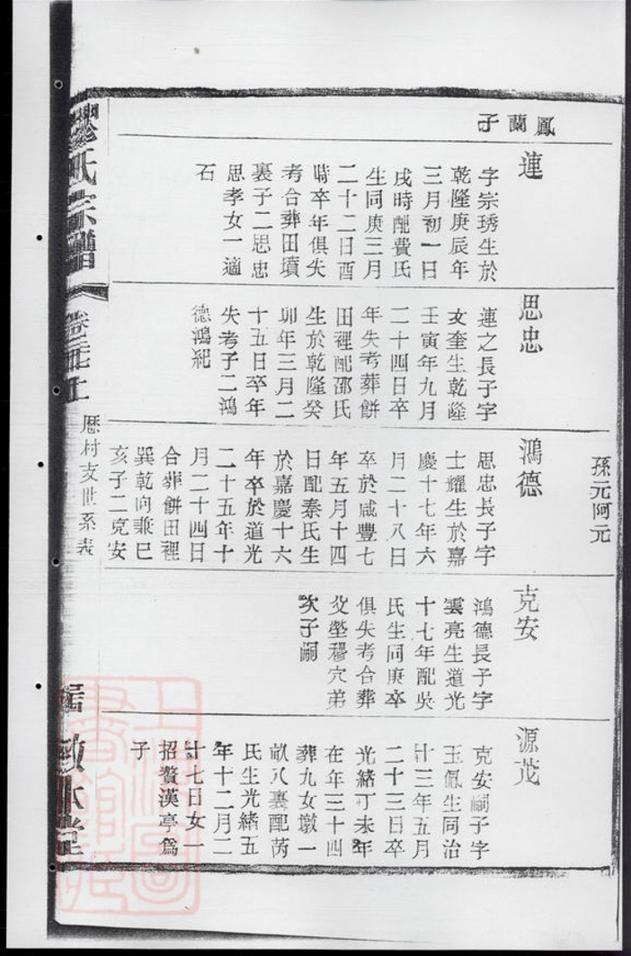 鳳蘭子
蓮
字宗琇生於
乾隆庚辰年
三月初一日
戌時配費氏
生同庚三月
二十二日酉
時卒年俱失
考合葬田墳
裏子二思忠
思孝女一適
石
思忠
蓮之長子字
文奎生乾隆
壬寅年九月
二十四日卒
年失考葬餅
田裡配邵氏
生於乾隆癸
卯年三月二
十五日卒年
失考子二鴻
德鴻紀
孫元阿元
鴻德
思忠長子字
士耀生於嘉
慶十七年六
月二十八日
卒於咸豐七
年五月十四
日配秦氏生
於嘉慶十六
年卒於道光
二十五年十
月二十四日
合葬餅田裡
巽乾向兼巳
亥子二克安
克安
鴻德長子字
雲亮生道光
十七年配吳
氏生同庚卒
俱失考合葬
父塋穆穴弟
次子嗣
源茂
克安嗣子字
玉佩生同治
廿三年五月
二十三日卒
光緒丁未年
在年三十四
葬九女墩一
畝八裏配芮
氏生光緒五
年十二月二
廿七日女一
招贅漢亭爲
子
氏宗譜
歷村支世系表
敘倫堂